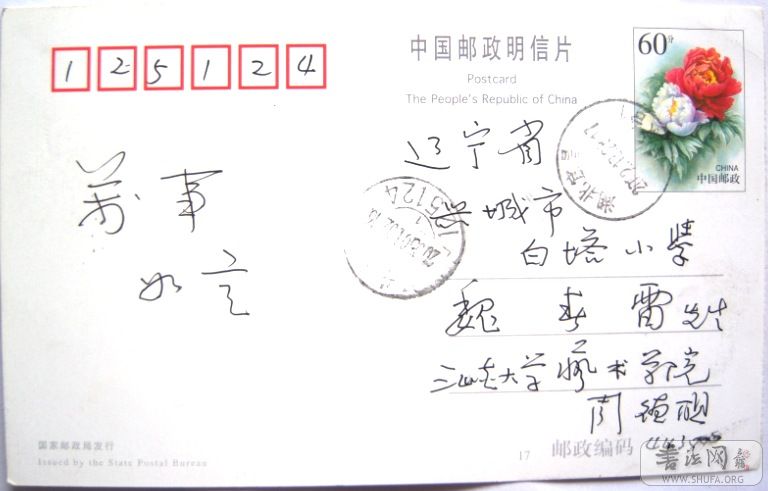 125124
中国邮政明信片
Postcard
The People's Republic of China
60分
CHINA
中国邮政
辽宁省
兴城市
白塔小学
魏春雷先生
三峡大学艺术学院
周德聪
萬事
如意
湖北宜昌
125124
国家邮政局发行
Issued by the State Postal Bureau
17
邮政编码
书法网
WWW.SHUFA.ORG